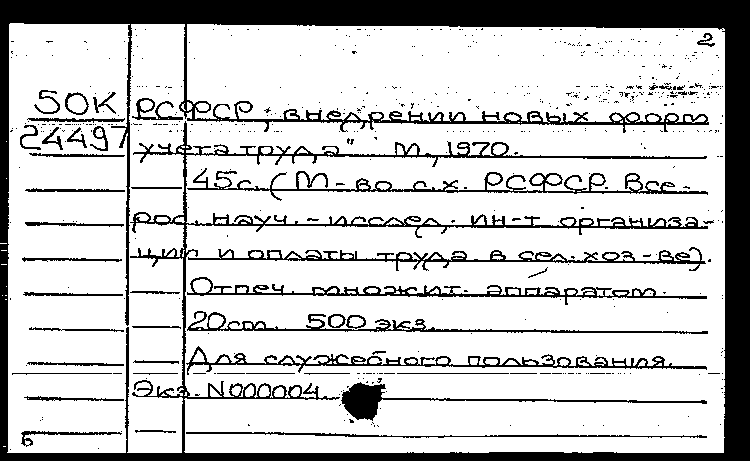 2
50К
24497
РСФСР; внедрении новых форм
учета труда" М., 1970.
45с. (М-во с.х. РСФСР. Все-
рос. науч.-исслед. ин-т организа-
ции и оплаты труда в сел. хоз-ве).
Отпеч. множит. аппаратом.
20см. 500 экз.
Для служебного пользования.
Экз. N000004.
б